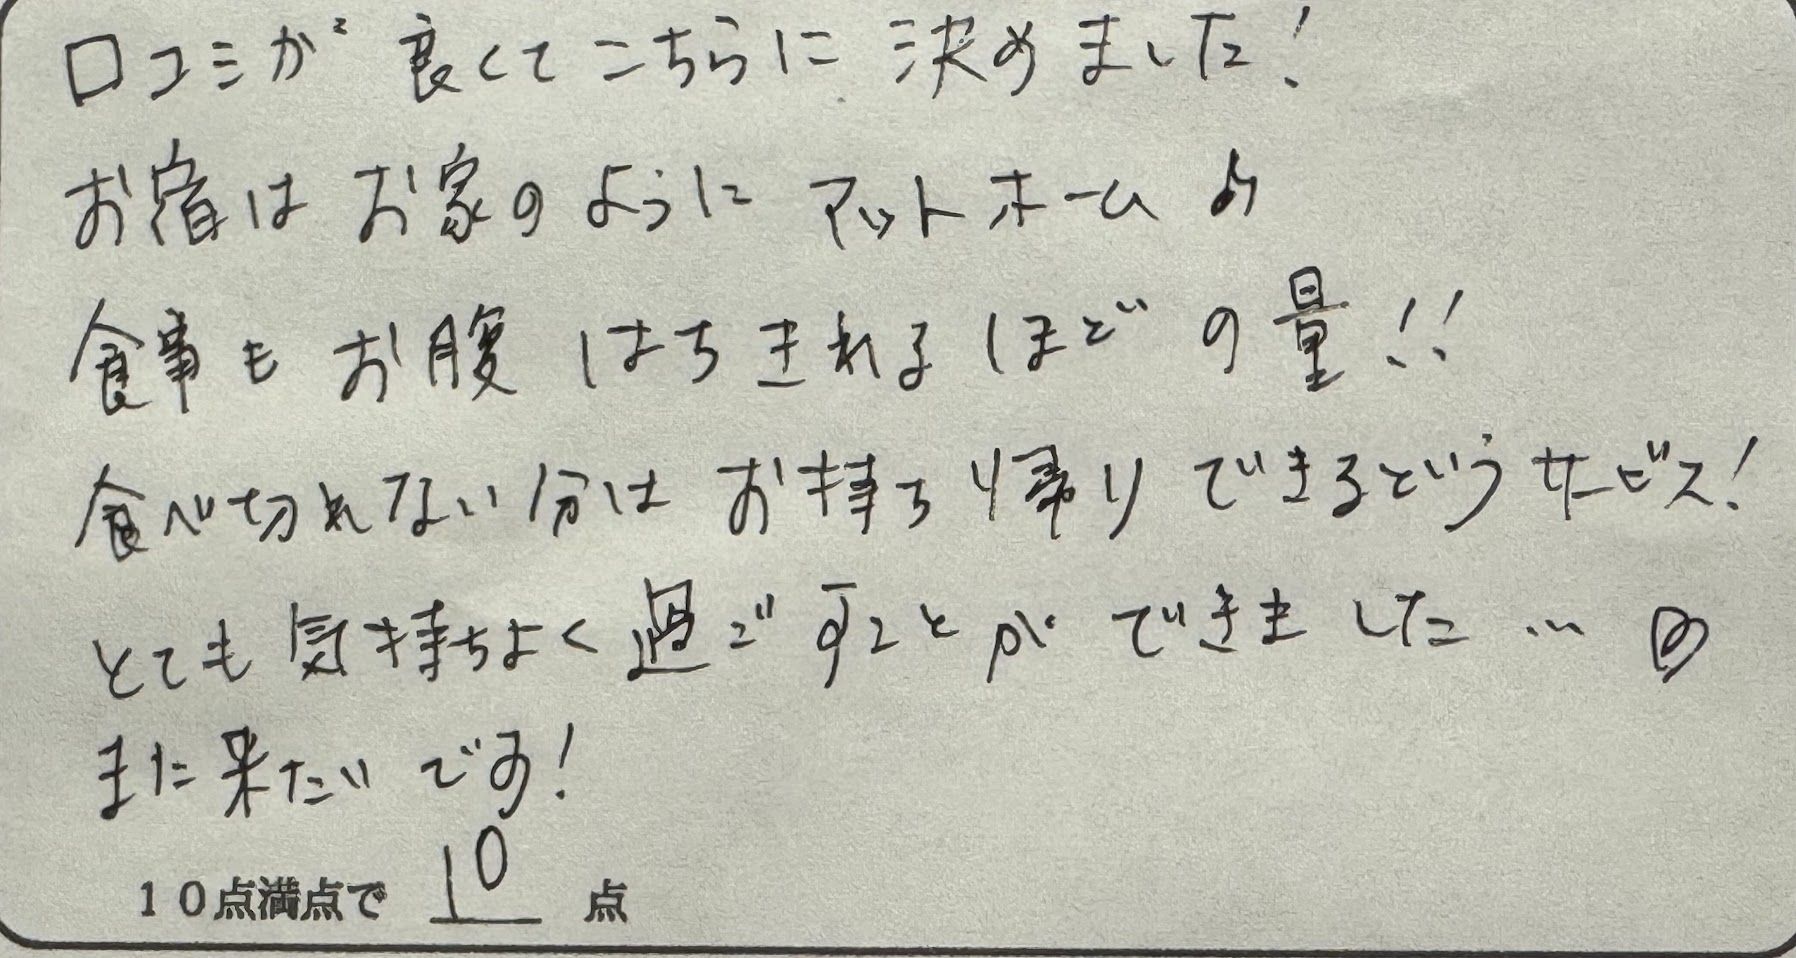 口コミが良くてこちらに決めました!
お宿はお家のようにアットホーム♪
食事もお腹はちきれるほどの量!!
食べ切れない分はお持ち帰りできるというサービス!
とても気持ちよく過ごすことができました…♡
また来たいです!
10点満点で 10 点